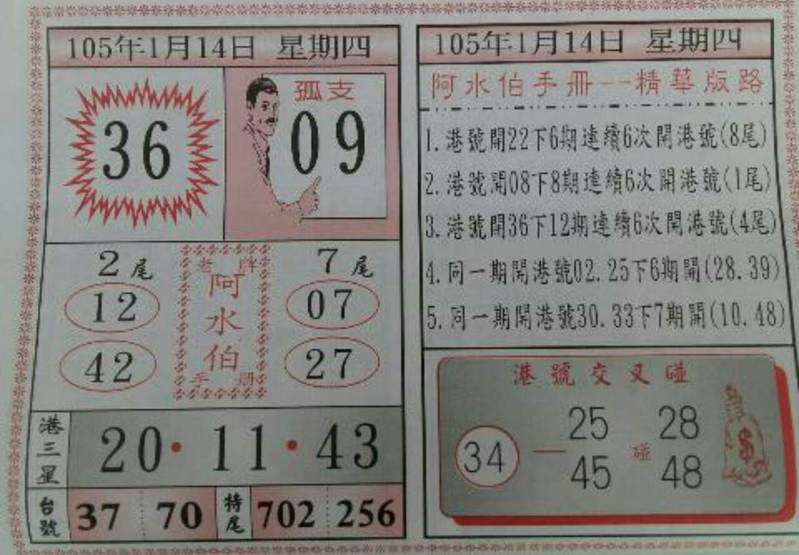 105年1月14日 星期四
36
孤支
09
2尾
7尾
老牌
阿水伯
手冊
12
07
42
27
港三星
20·11·43
台號
37 70
特尾
702 256
105年1月14日 星期四
阿水伯手冊--精華版路
1.港號開22下6期連續6次開港號(8尾)
2.港號開08下8期連續6次開港號(1尾)
3.港號開36下12期連續6次開港號(4尾)
4.同一期開港號02.25下6期開(28.39)
5.同一期開港號30.33下7期開(10.48)
港號交叉碰
25 28
34 — 碰
45 48
$